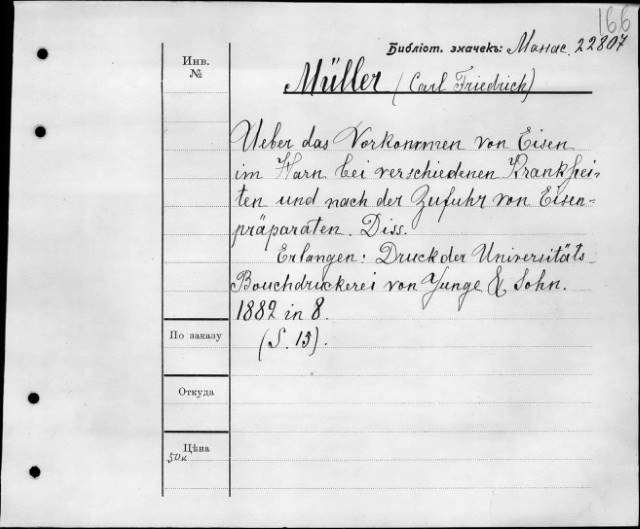 166
Библіот. значекъ: Манас. 22807
Инв.
№
Müller (Carl Friedrich)
Ueber das Vorkommen von Eisen
im Harn bei verschiedenen Krankhei-
ten und nach der Zufuhr von Eisen-
präparaten. Diss.
Erlangen: Druck der Universitäts-
Bouchdruckerei von Junge & Sohn.
1882 in 8.
По заказу
(S. 15).
Откуда
Цѣна
50к